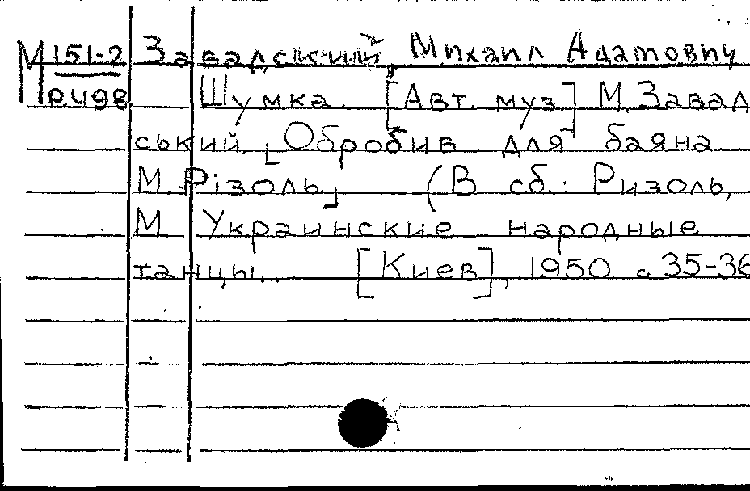 М 151-2 Завадский, Михаил Адамович
Р498 Шумка. [Авт. муз.] М. Завад-
ський. Обробив для баяна
М. Різоль (В сб.: Ризоль,
М. Украинские народные
танцы. [Киев], 1950 с. 35-36